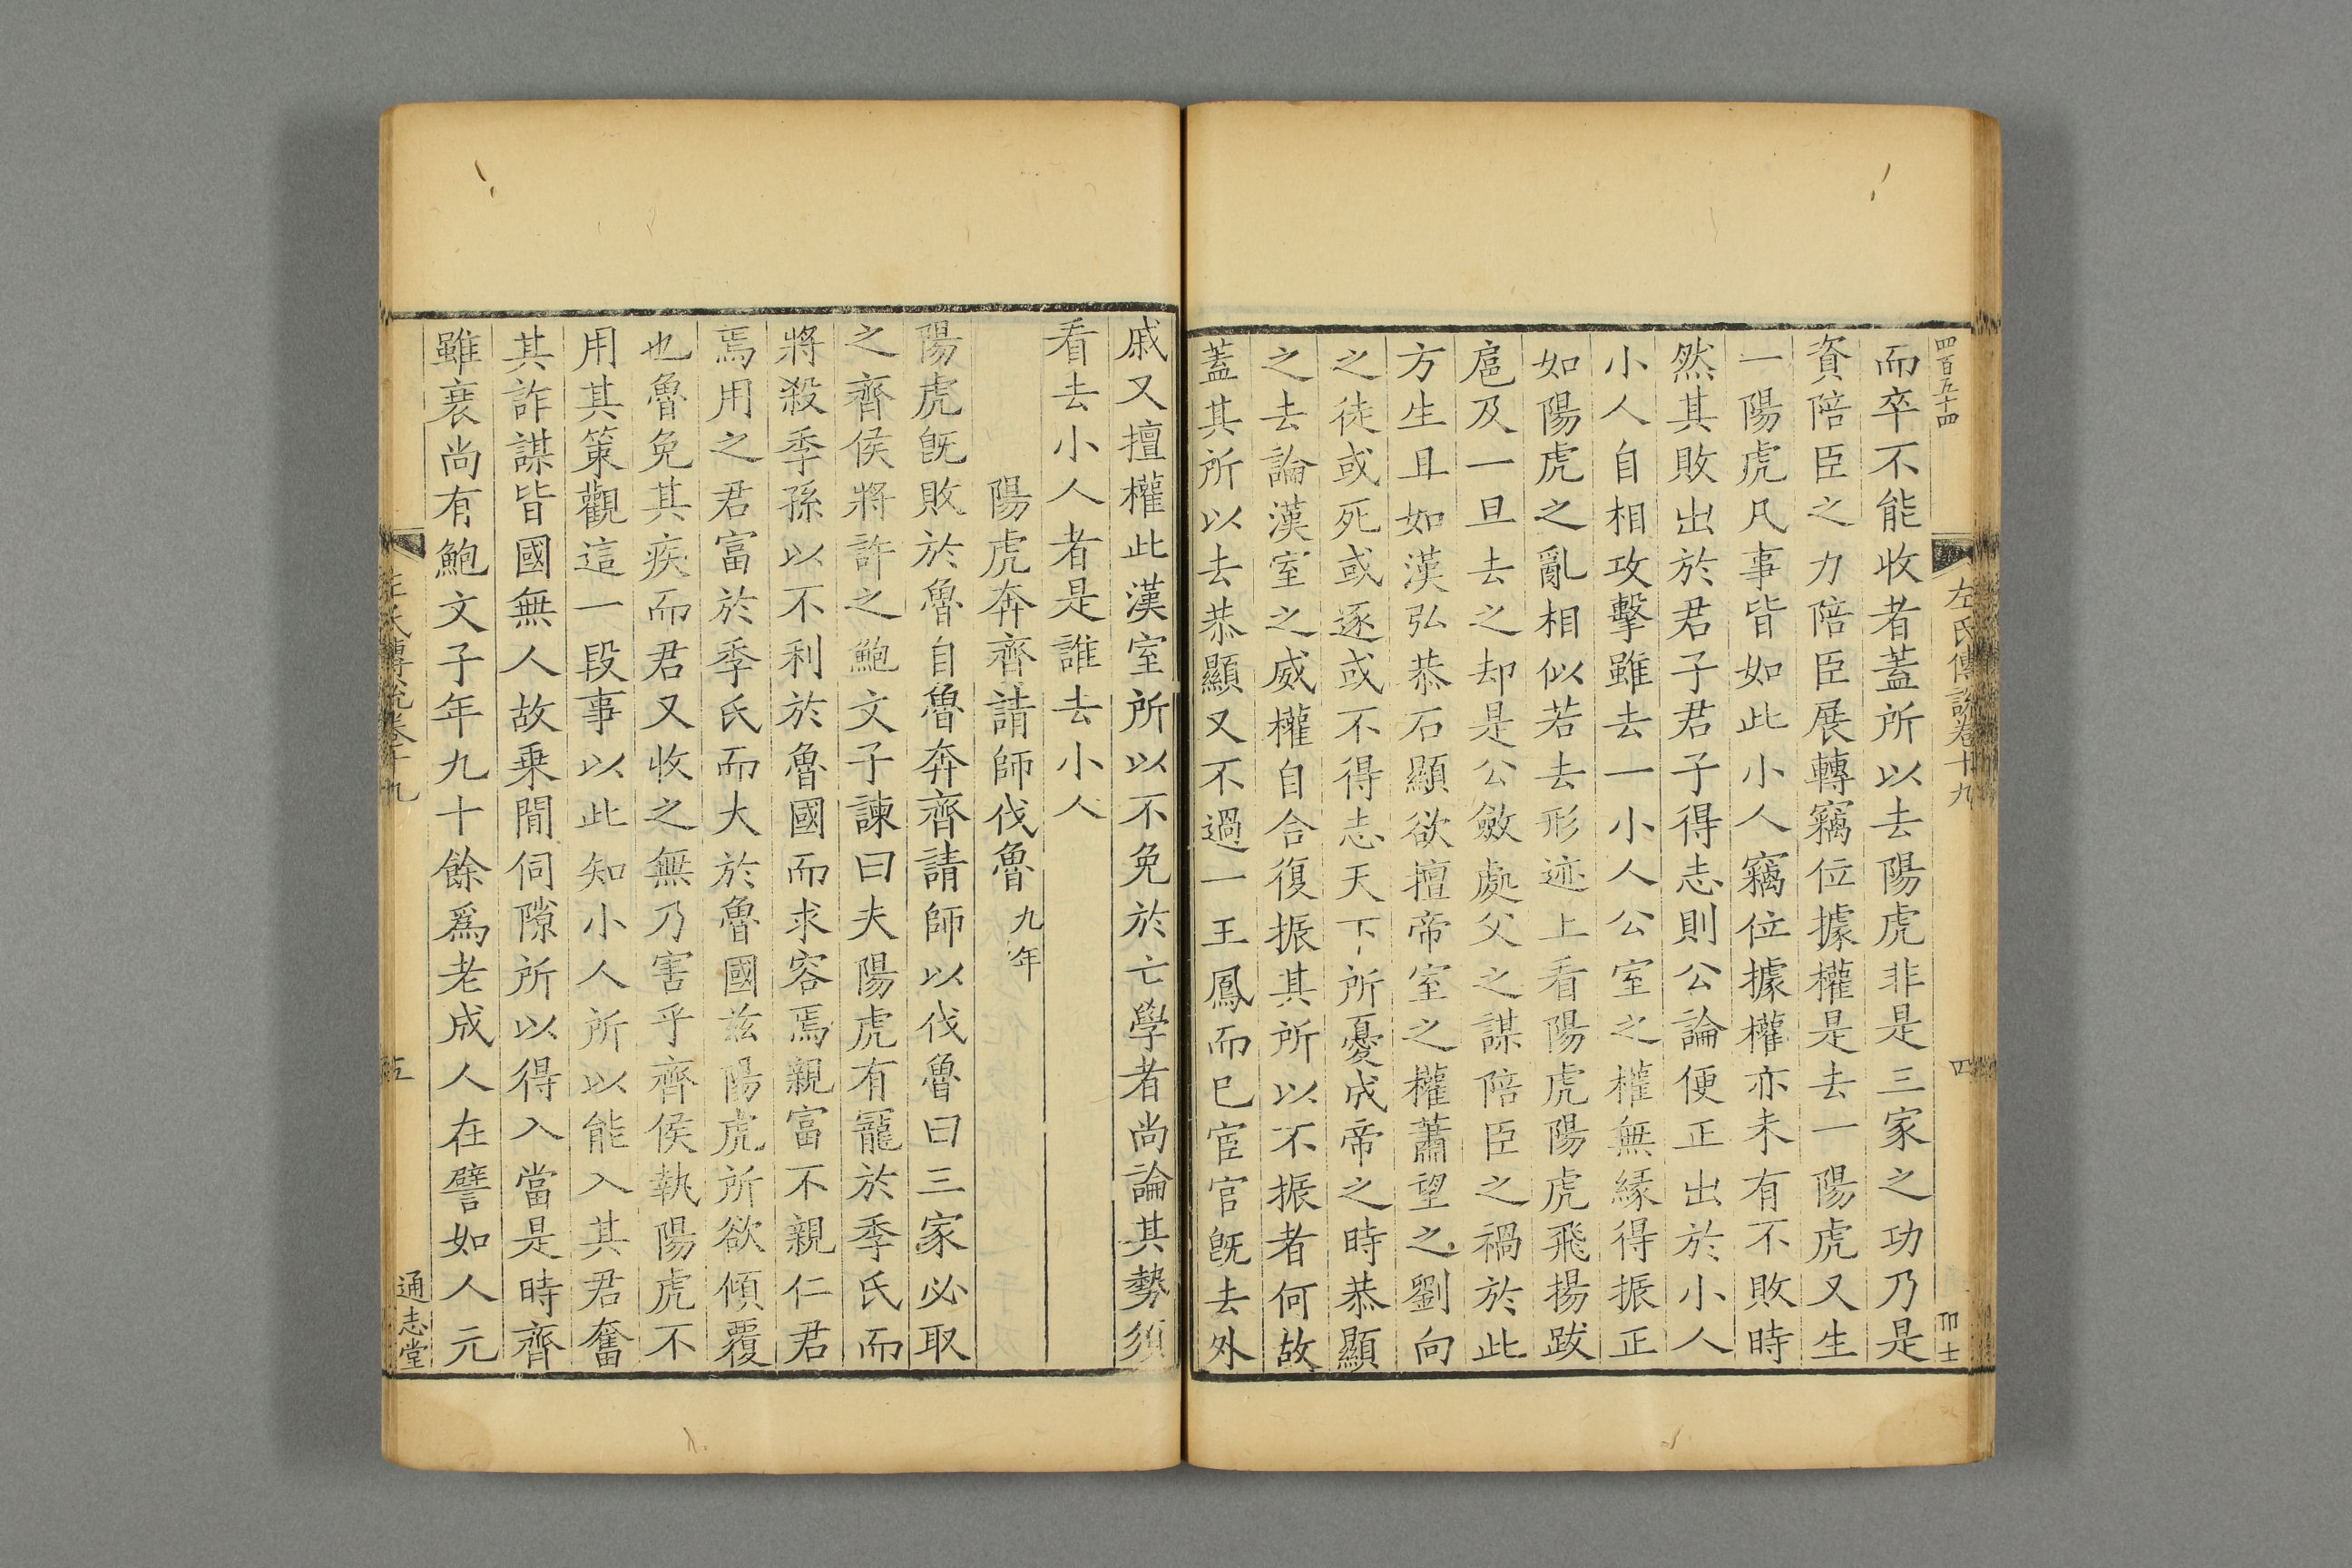 四百五十四
左氏傳說卷十九
四
而卒不能收者蓋所以去陽虎非是三家之功乃是
資陪臣之力陪臣展轉竊位據權是去一陽虎又生
一陽虎凡事皆如此小人竊位據權亦未有不敗時
然其敗出於君子君子得志則公論便正出於小人
小人自相攻擊雖去一小人公室之權無緣得振正
如陽虎之亂相似若去形迹上看陽虎陽虎飛揚跋
扈及一旦去之却是公斂處父之謀陪臣之禍於此
方生且如漢弘恭石顯欲擅帝室之權蕭望之劉向
之徒或死或逐或不得志天下所憂成帝之時恭顯
之去論漢室之威權自合復振其所以不振者何故
蓋其所以去恭顯又不過一王鳳而已宦官旣去外
戚又擅權此漢室所以不免於亡學者尚論其勢須
看去小人者是誰去小人
陽虎奔齊請師伐魯九年
陽虎旣敗於魯自魯奔齊請師以伐魯曰三家必取
之齊侯將許之鮑文子諫曰夫陽虎有寵於季氏而
將殺季孫以不利於魯國而求容焉親富不親仁君
焉用之君富於季氏而大於魯國兹陽虎所欲傾覆
也魯免其疾而君又收之無乃害乎齊侯執陽虎不
用其策觀這一段事以此知小人所以能入其君奮
其詐謀皆國無人故乗閒伺隙所以得入當是時齊
雖衰尚有鮑文子年九十餘爲老成人在譬如人元
左氏傳說卷十九
五
通志堂